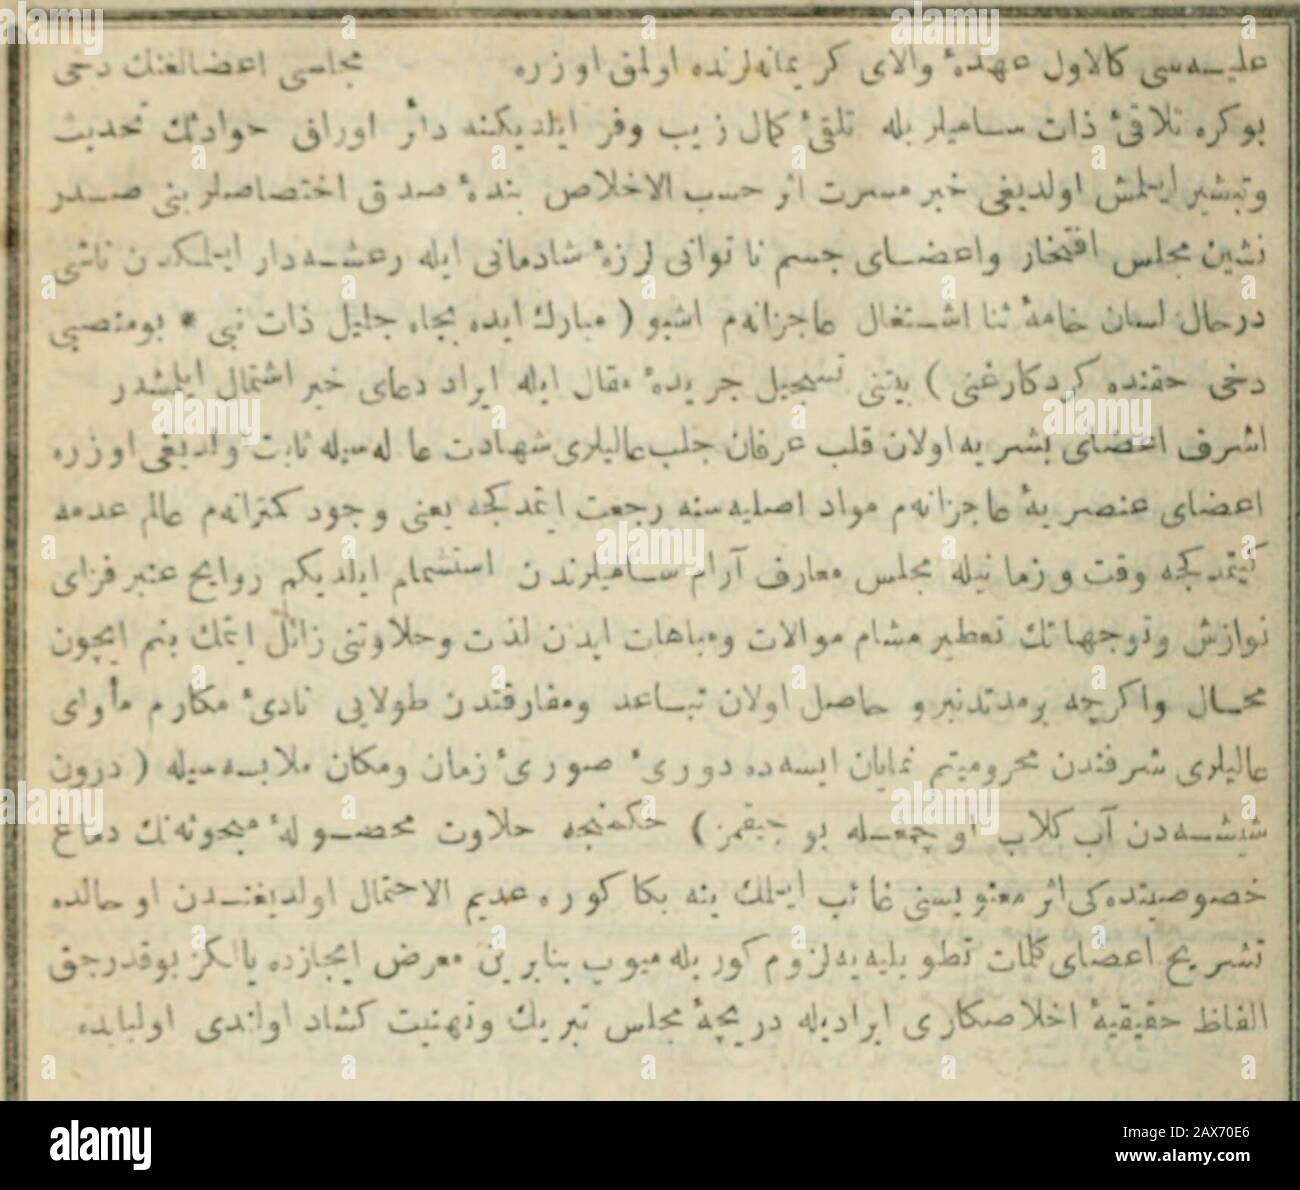 علیه‌سی کالاول عهدهٔ والای کریمانه‌لرنده اولمق اوزره مجلسی اعضالغنك دخی
بو کره تلاقیٔ ذات سامیلریله تلقیٔ کمال زیب وفر ایلدیکنه دائر اوراق حوادثك تحدیث
وتبشیر ایلمش اولدیغی خبر مسرت اثر حسب الاخلاص بندهٔ صدق اختصاصلرینی صدر
نشین مجلس افتخار واعضای جسم ناتوانی لرزهٔ شادمانی ایله رعشه‌دار ایلمکدن ناشی
درحال لسان خامهٔ ثنا اشتغال عاجزانه‌م اشبو ( مبارك ایده بجاه جلیل ذات نبی * بو منصبی
دخی حقنده کردکارغنی ) بیتنی تسجیل جریدهٔ مقال ایله ایراد دعای خیر اشتمال ایلمشدر
اشرف اعضای بشریه اولان قلب عرفان جلب عالیلری شهادت عادله‌سیله ثابت اولدیغی اوزره
اعضای عنصریهٔ عاجزانه‌م مواد اصلیه‌سنه رجعت ایتمدکجه یعنی وجود کمترانه‌م عالم عدمه
کیتمدکجه وقت وزمانیله مجلس معارف آرام سامیلرندن استشمام ایلدیکم روایح عنبرفزای
نوازش وتوجهاتك تعطیر مشام موالات ومباهات ایدن لذت وحلاوتنی زائل ایتمك بنم ایچون
محال واکرچه برمدتدنبرو حاصل اولان تباعد ومفارقتدن طولایی نادیٔ مکارم مأوای
عالیلری شرفندن محرومیتم نمایان ایسه‌ده دوریٔ صوریٔ زمان ومکان ملابسه‌سیله ( درون
شیشه‌دن آب کلاب اوچسه‌له بو چیقمز ) حکمنجه حلاوت محصولهٔ مبحوثه‌نك دماغ
خصوصیتده‌کی اثر معنویسنی غائب ایتمك ینه بکا کوره عدیم الاحتمال اولدیغندن او حالده
تشریح اعضای کلمات تطویلیه‌یه لزوم کوریله‌میوب بنابرین معرض ایجازده یالکز بوقدرجق
الفاظ حقیقیهٔ اخلاصکاری ایرادیله دریچهٔ مجلس تبریك وتهنیت کشاد اولندی اولبابده
alamy
Image ID: 2AX70E6
www.alamy.com